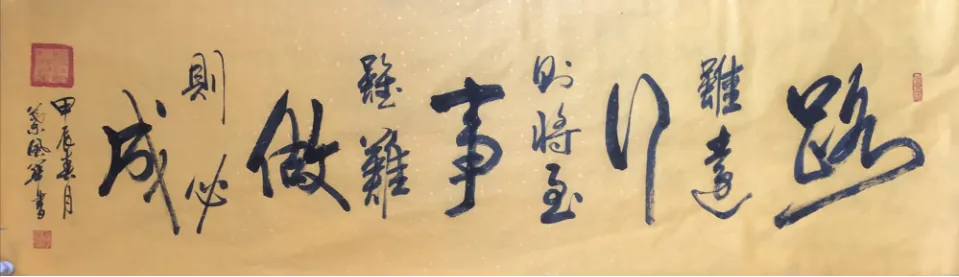 路
雖遠
行
则將至
事
雖難
做
則必
成
甲辰春月
風 書